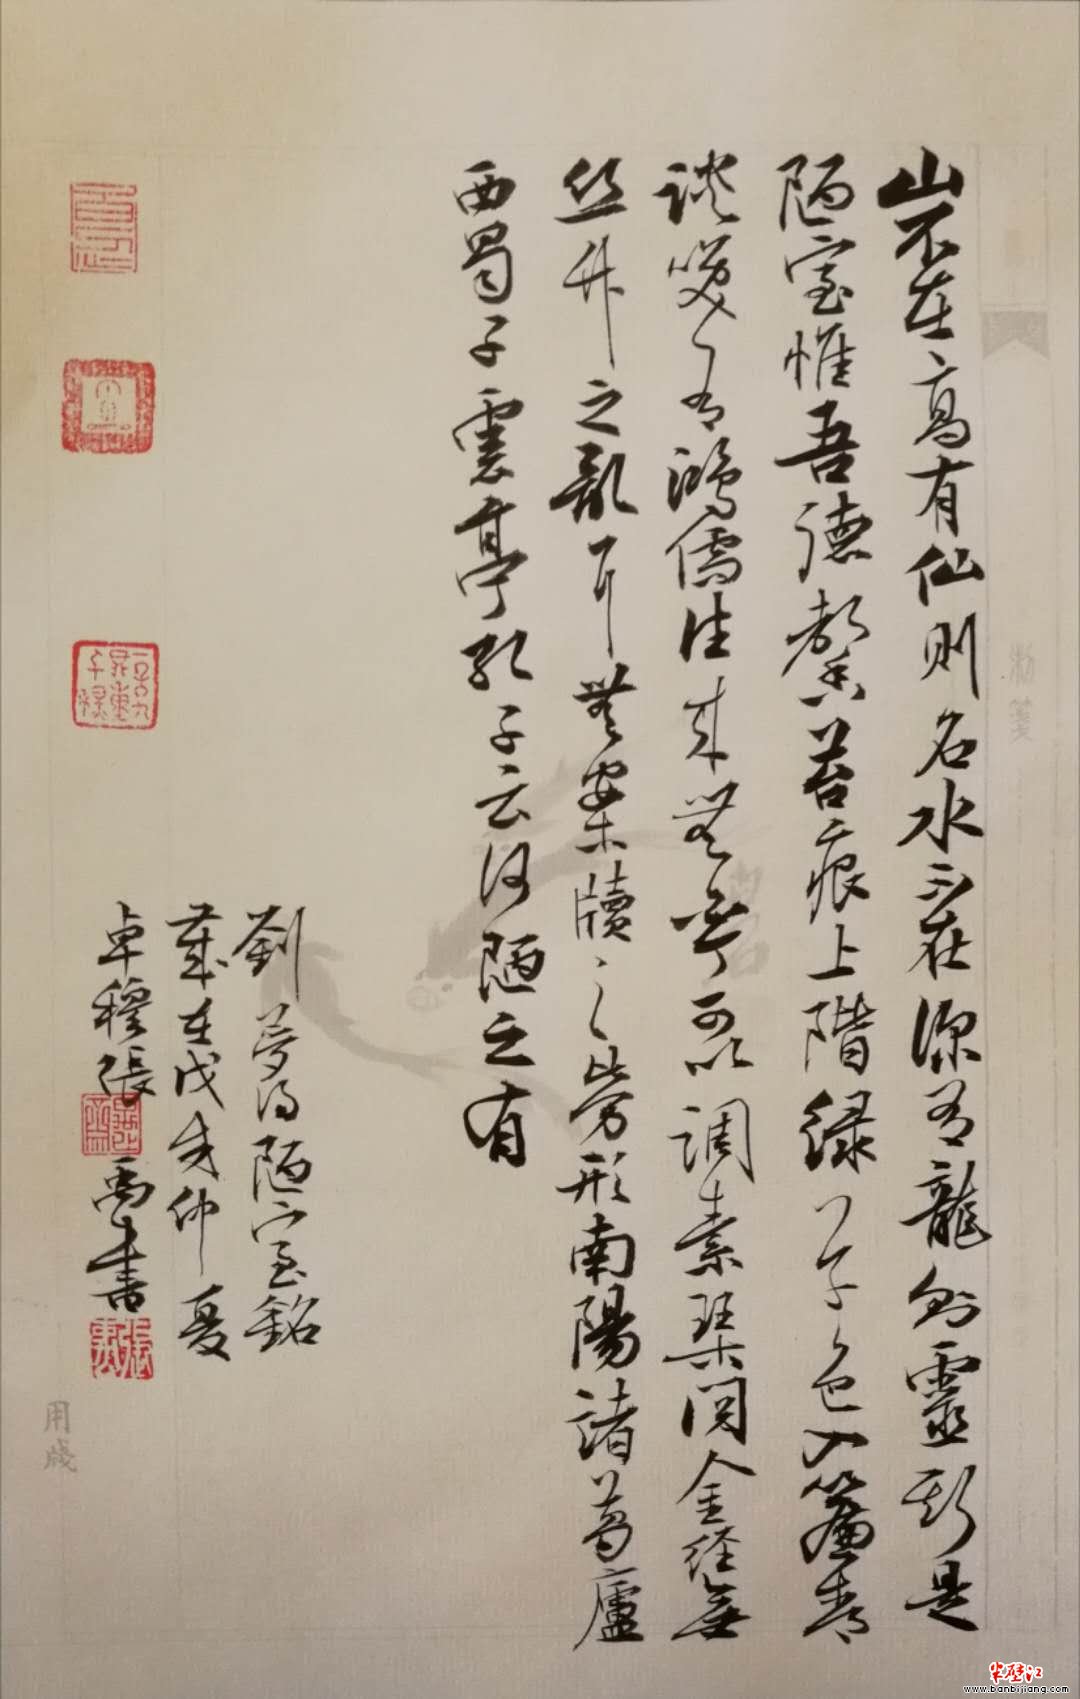 山不在高有仙則名水不在深有龍則靈斯是
陋室惟吾德馨苔痕上階緑草色入簾青
談笑有鴻儒往来無白丁可以調素琴閱金經無
丝竹之亂耳無案牘之勞形南陽諸葛廬
西蜀子雲亭孔子云何陋之有
劉夢得陋室銘
歲在戊戌仲夏
卓穆張禹書
用箋
半壁江
www.banbijiang.com